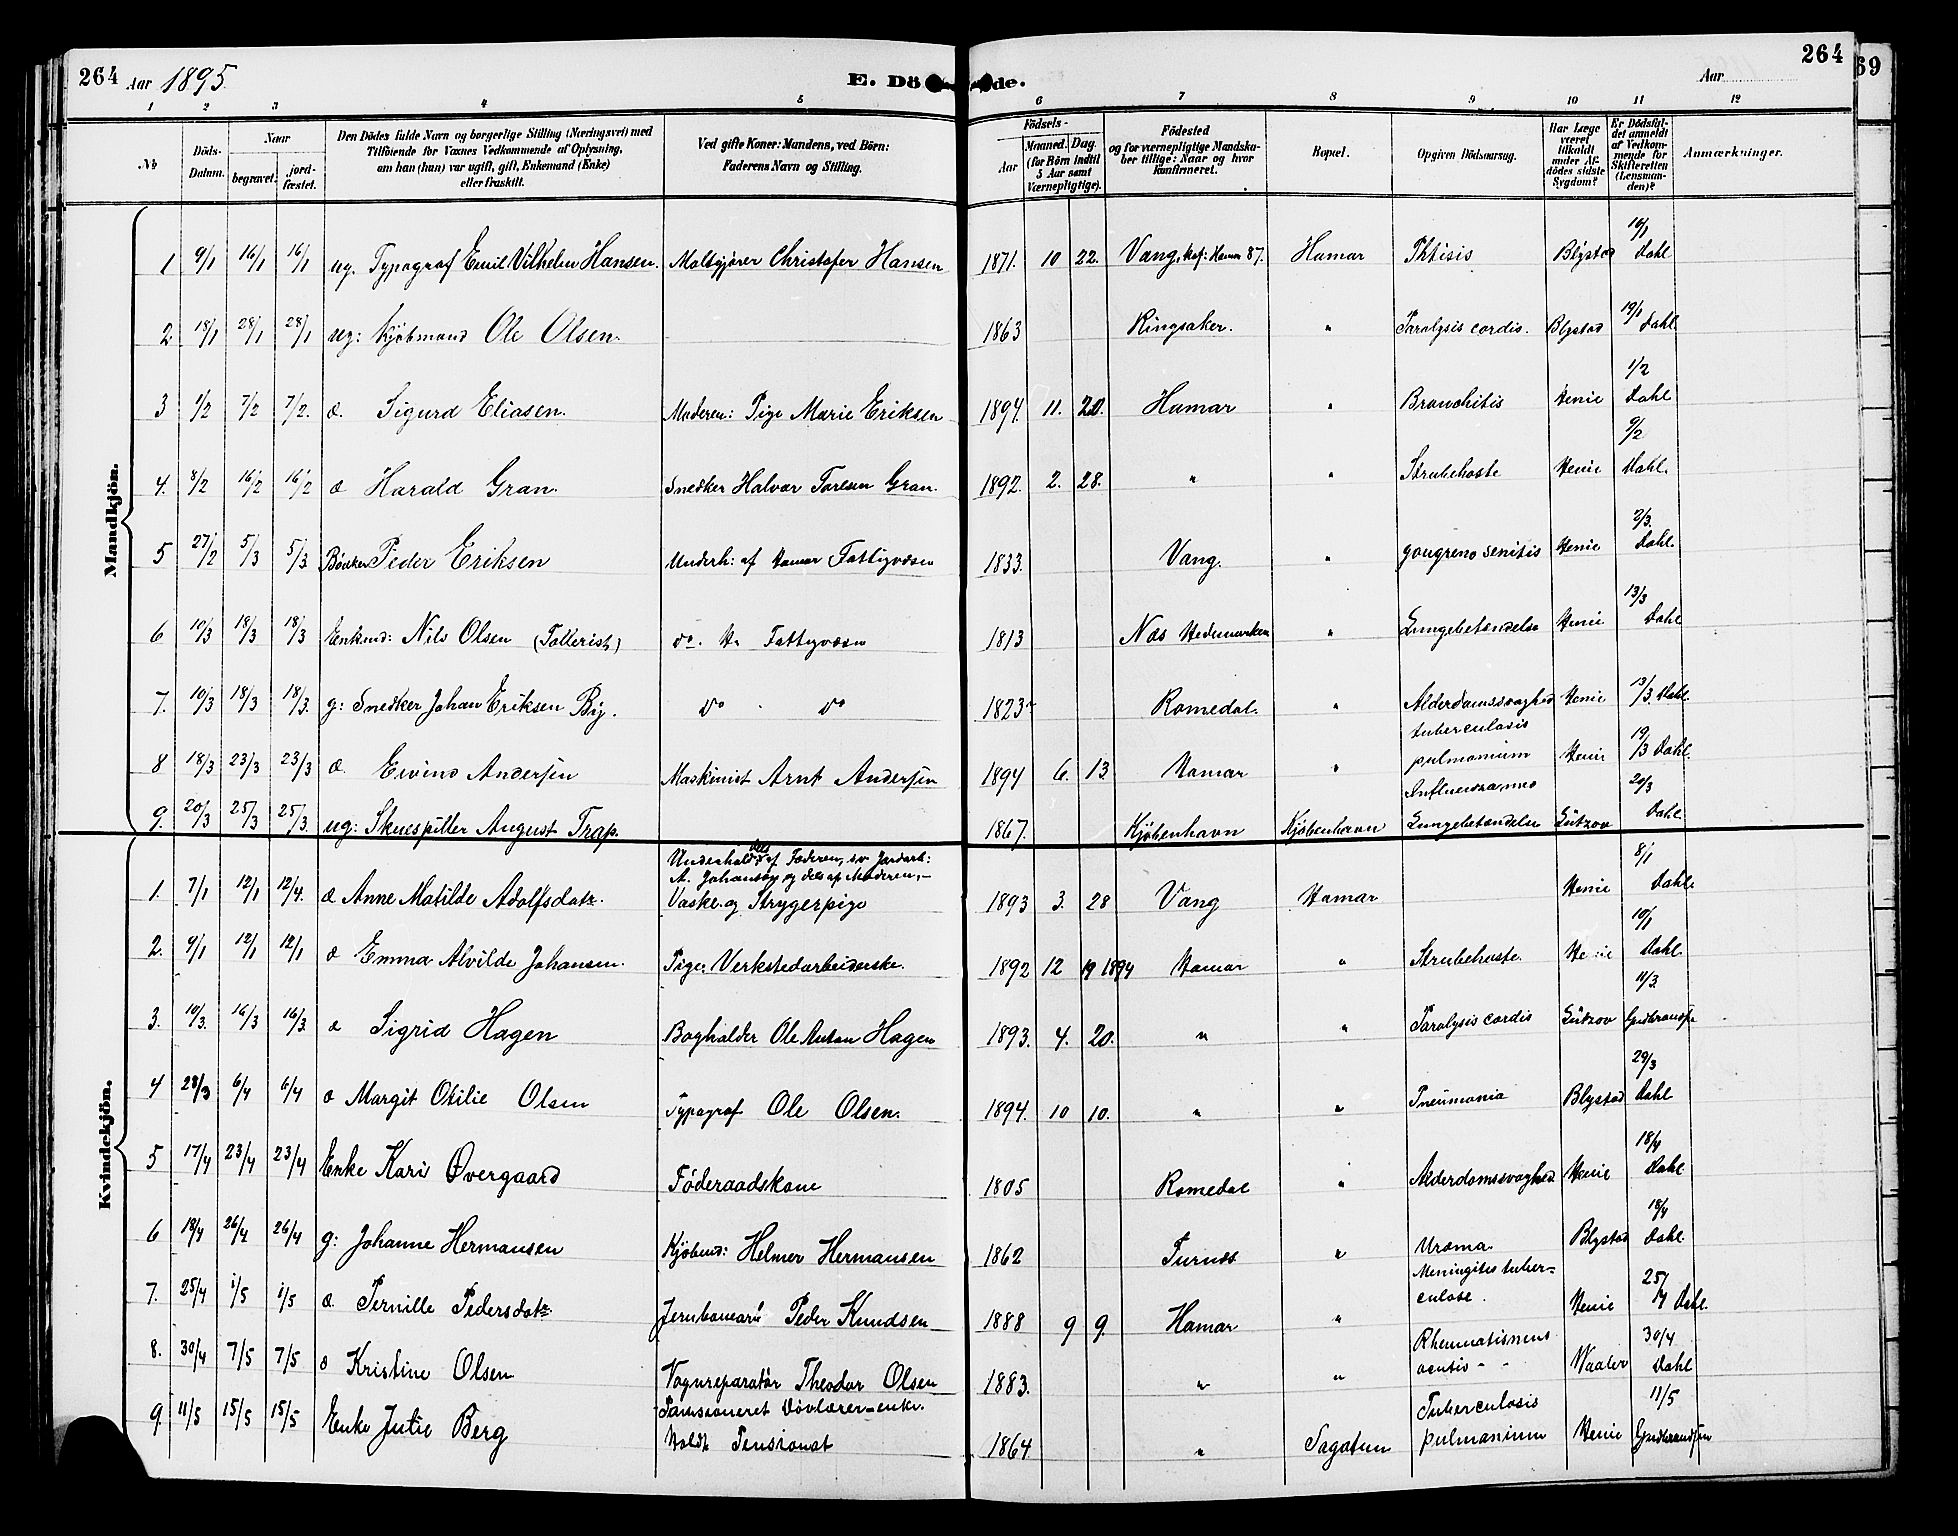 264 Aar 1895. E. Dö de. Aar 264
69
1 2 3 4 5 6 7 8 9 10 11 12
No Döds-Datum. Naar begravet. jord-fæstet. Den Dödes fulde Navn og borgerlige Stilling (Næringsvei) med Tilföiende for Voxnes Vedkommende af Oplysning, om han (hun) var ugift, gift, Enkemand (Enke) eller fraskilt. Ved gifte Koner: Mandens, ved Börn: Faderens Navn og Stilling. Födsels- Aar Maaned. Dag. (for Börn indtil 5 Aar samt Værnepligtige). Födested og for værnepligtige Mandskaber tillige: Naar og hvor konfirmeret. Bopæl. Opgiven Dödsaarsag. Har Læge været tilkaldt under Afdödes sidste Sygdom? Er Dödsfaldet anmeldt af Vedkommende for Skifteretten (Lensmanden)? Anmærkninger.
Mandkjön.
1 9/1 16/1 16/1 ug. Typograf Emil Vilhelm Hansen. Maltgjører Christofer Hansen 1871. 10 22. Vang, Kof: Hamar 87. Hamar Phtisis Blystad 16/1 Dahl
2 18/1 28/1 28/1 ug: Kjøbmand Ole Olsen. 1863 Ringsaker. " Paralysis cordis. Blystad 19/1 Dahl
3 1/2 7/2 7/2. æ. Sigurd Eliasen. Moderen: Pige Marie Eriksen 1894. 11. 20. Hamar " Bronchitis Henie 1/2 Dahl
4. 8/2 16/2 16/2 æ Harald Gran. Snedker Halvor Toresen Gran. 1892. 2. 28. " " Strubehoste Henie 9/2 Dahl.
5 27/2 5/3 5/3 Bødker Peder Eriksen Underh: af Hamar Fattigvæsen 1833. Vang. " gangrena senilis Henie 2/3. Dahl.
6 10/3 18/3 18/3 Enkemd: Nils Olsen (Tollerist) do. H. Fattigvæsen 1813 Næs Hedemarken " Lungebetændelse Henie 13/3 Dahl
7. 10/3 18/3 18/3. g: Snedker Johan Eriksen By. do " do 1823 Romedal. " Alderdomssvaghed Henie 13/3 Dahl.
8 18/3 23/3 23/3 æ. Eivind Andersen Maskinist Arnt Andersen 1894 6. 13 Hamar " tuberculosis pulmonium Henie 19/3 Dahl.
9. 20/3 25/3 25/3. ug: Skuespiller August Trap. 1867. Kjøbenhavn Kjøbenhavn Influenza med Lungebetændelse Lützov 20/3 Dahl.
Kvindekjön.
1. 7/1 12/1 12/4. æ Anne Matilde Adolfsdatr. Underholdt dels af Faderen, sv Jordarb: A. Johansen og dels af Moderen, Vaske- og Strygerpige 1893 3. 28 Vang Hamar Henie 8/1 Dahl.
2. 9/1 12/1 12/1 æ Emma Alvilde Johansen. Pige: Verkstedarbeiderske. 1892 12 19 1894 Hamar " Strubehoste. Henie 10/1 Dahl.
3. 10/3. 16/3 16/3. æ Sigrid Hagen Bogholder Ole Anton Hagen 1893. 4. 20. " " Paralysis cordis Lützov 11/3. Gudbrandsen
4 28/3 6/4 6/4 æ Margit Otilie Olsen Typograf Ole Olsen. 1894. 10 10. " " Pneumonia Blystad 29/3 Dahl
5 17/4 23/4 23/4 Enke Kari Overgaard Føderaadskone 1805 Romedal " Alderdomssvaghed Henie 18/4 Dahl
6 18/4 26/4 26/4 g: Johanne Hermansen Kjøbmd: Helmer Hermansen 1862 Furnes " Uræmia. Blystad 18/4 Dahl.
7. 25/4 1/5 1/5 æ. Pernille Pedersdatr Jernbanearb Peder Knudsen 1888 9 9. Hamar " Meningites tuberculose. Henie 25/4 Dahl.
8. 30/4 7/5 7/5 æ Kristine Olsen Vognreparatør Theodor Olsen 1883. " " Rheumatismus acutis Waaler 30/4 Dahl
9. 11/5 15/5 15/5 Enke Julie Berg Pensioneret Døvlærer-enke. Holdt Pensionat 1864 " Sagatun Tuberculosis pulmonium Henie 11/5 Gudbrandsen